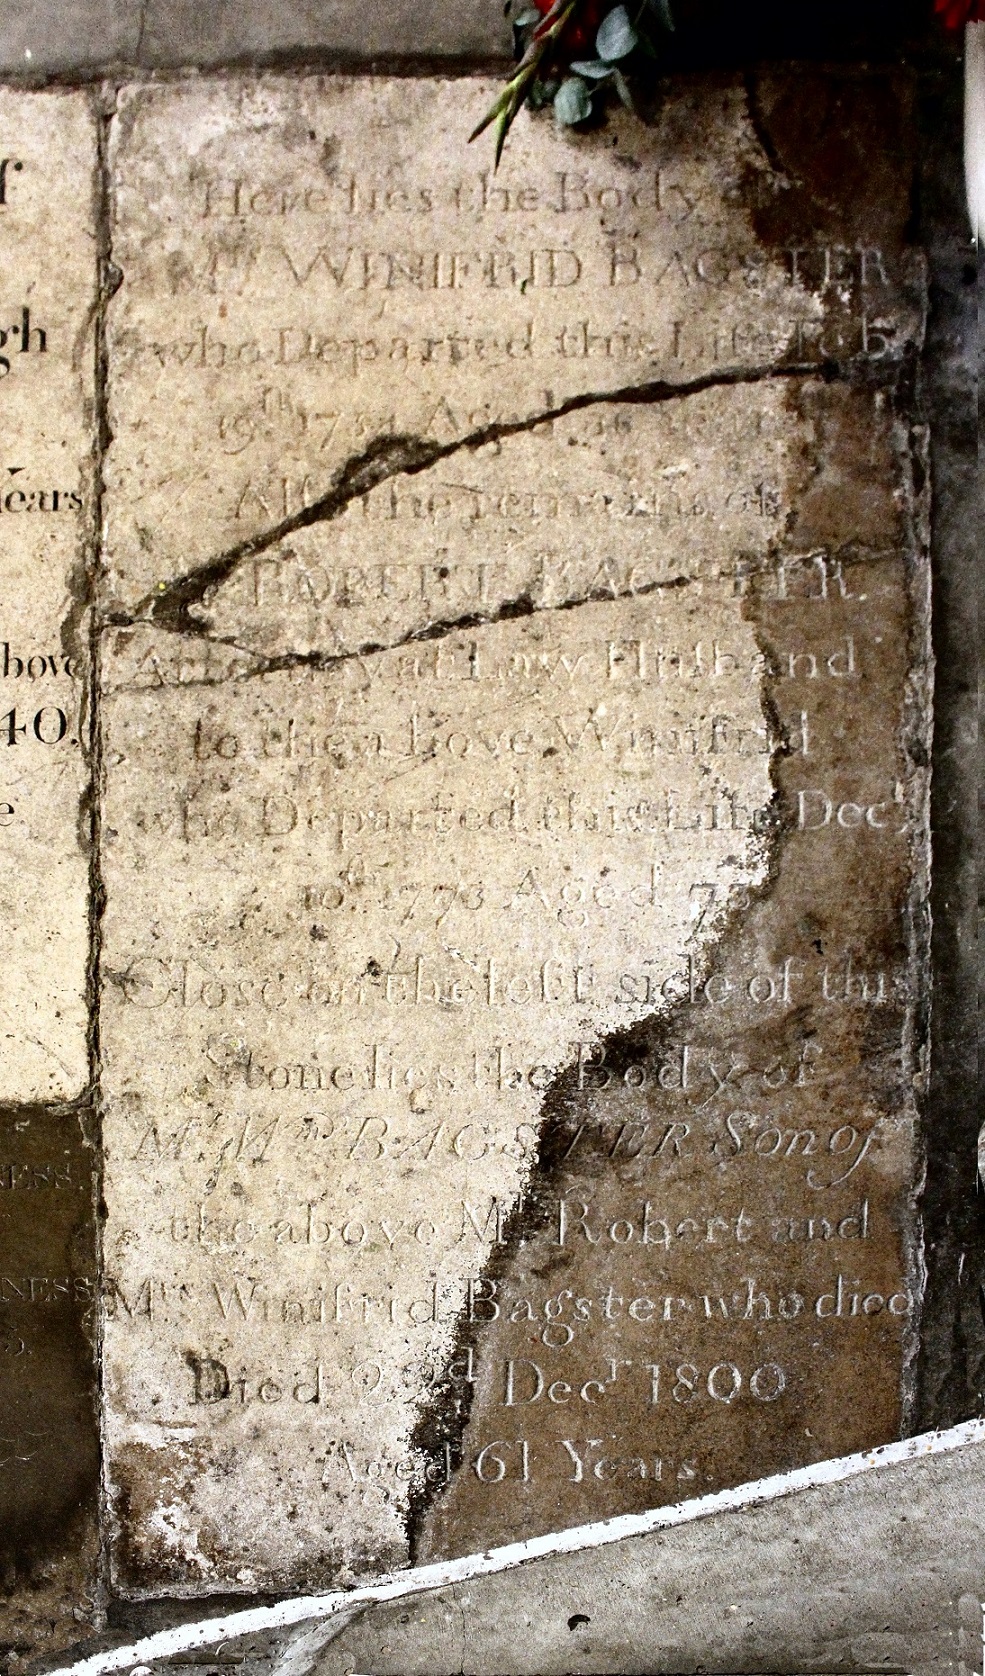 Here lies the Body of
Mrs WINIFRID BAGSTER
who Departed this Life Feb
19th 17 Aged 36 Years
Also the remains of
ROBERT BAGSTER.
Attorney at Law Husband
to the above Winifrid
who Departed this Life Decr
10th 1773 Aged 75
Close on the left side of this
Stone lies the Body of
Mr Wm BAGSTER Son of
the above Mr Robert and
Mrs Winifrid Bagster who died
Died 22d Decr 1800
Aged 61 Years.
f
gh
Years
bove
40.
e
NESS.
NESS